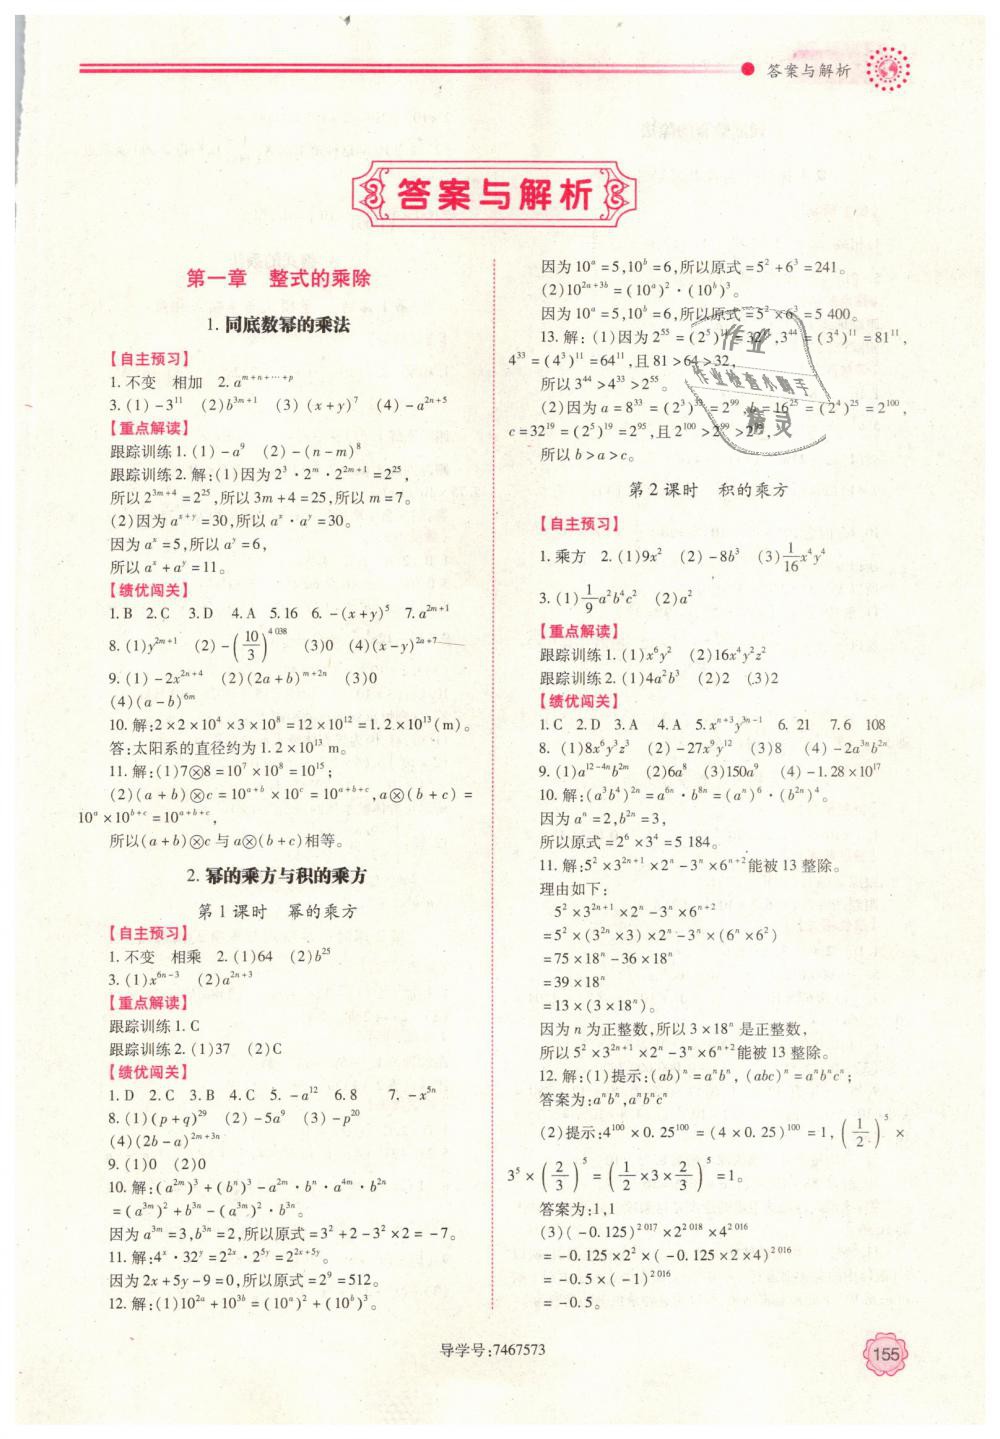 答案与解析
答案与解析
第一章　整式的乘除
1. 同底数幂的乘法
【自主预习】
1. 不变　相加　2. a^{m+n+⋯+p}
3. (1) -3^{11}　(2)b^{3m+1}　(3) (x+y)^7　(4) -a^{2n+5}
【重点解读】
跟踪训练1. (1) -a^9　(2) -(n-m)^8
跟踪训练2. 解:(1)因为2^3·2^m·2^{2m+1}=2^{25},
所以2^{3m+4}=2^{25},所以3m+4=25,所以m=7。
(2)因为a^{x+y}=30,所以a^x·a^y=30。
因为a^x=5,所以a^y=6,
所以a^x+a^y=11。
【绩优闯关】
1. B　2. C　3. D　4. A　5. 16　6. -(x+y)^5　7. a^{2m+1}
8. (1)y^{2m+1}　(2) -(10/3)^{4 038}　(3)0　(4)(x-y)^{2a+7}
9. (1) -2x^{2n+4}　(2)(2a+b)^{m+2n}　(3)0
(4)(a-b)^{6m}
10. 解:2×2×10^4×3×10^8=12×10^{12}=1.2×10^{13}(m)。
答:太阳系的直径约为1.2×10^{13} m。
11. 解:(1)7⊗8=10^7×10^8=10^{15};
(2)(a+b)⊗c=10^{a+b}×10^c=10^{a+b+c},a⊗(b+c)=
10^a×10^{b+c}=10^{a+b+c},
所以(a+b)⊗c与a⊗(b+c)相等。
2. 幂的乘方与积的乘方
第1课时　幂的乘方
【自主预习】
1. 不变　相乘　2. (1)64　(2)b^{25}
3. (1)x^{6n-3}　(2)a^{2n+3}
【重点解读】
跟踪训练1. C
跟踪训练2. (1)37　(2)C
【绩优闯关】
1. D　2. C　3. B　4. C　5. -a^{12}　6. 8　7. -x^{5n}
8. (1)(p+q)^{29}　(2) -5a^9　(3) -p^{20}
(4)(2b-a)^{2m+3n}
9. (1)0　(2)0
10. 解:(a^{2m})^3+(b^n)^3-a^{2m}·b^n·a^{4m}·b^{2n}
=(a^{3m})^2+b^{3n}-(a^{3m})^2·b^{3n}。
因为a^{3m}=3,b^{3n}=2,所以原式=3^2+2-3^2×2=-7。
11. 解:4^x·32^y=2^{2x}·2^{5y}=2^{2x+5y}。
因为2x+5y-9=0,所以原式=2^9=512。
12. 解:(1)10^{2a}+10^{3b}=(10^a)^2+(10^b)^3。
因为10^a=5,10^b=6,所以原式=5^2+6^3=241。
(2)10^{2a+3b}=(10^a)^2·(10^b)^3。
因为10^a=5,10^b=6,所以原式=5^2×6^3=5 400。
13. 解:(1)因为2^{55}=(2^5)^{11}=32^{11},3^{44}=(3^4)^{11}=81^{11},
4^{33}=(4^3)^{11}=64^{11},且81>64>32,
所以3^{44}>4^{33}>2^{55}。
(2)因为a=8^{33}=(2^3)^{33}=2^{99},b=16^{25}=(2^4)^{25}=2^{100},
c=32^{19}=(2^5)^{19}=2^{95},且2^{100}>2^{99}>2^{95},
所以b>a>c。
作业
作业检查小助手
精灵
第2课时　积的乘方
【自主预习】
1. 乘方　2. (1)9x^2　(2) -8b^3　(3)1/16 x^4y^4
3. (1)1/9 a^2b^4c^2　(2)a^2
【重点解读】
跟踪训练1. (1)x^6y^2　(2)16x^4y^2z^2
跟踪训练2. (1)4a^2b^3　(2)2　(3)2
【绩优闯关】
1. C　2. D　3. A　4. A　5. x^{n+3}y^{3n-1}　6. 21　7. 6　108
8. (1)8x^6y^3z^3　(2) -27x^9y^{12}　(3)8　(4) -2a^{3n}b^{2n}
9. (1)a^{12-4n}b^{2m}　(2)6a^8　(3)150a^9　(4) -1.28×10^{17}
10. 解:(a^3b^4)^{2n}=a^{6n}·b^{8n}=(a^n)^6·(b^{2n})^4。
因为a^n=2,b^{2n}=3,
所以原式=2^6×3^4=5 184。
11. 解:5^2×3^{2n+1}×2^n-3^n×6^{n+2}能被13整除。
理由如下:
5^2×3^{2n+1}×2^n-3^n×6^{n+2}
=5^2×(3^{2n}×3)×2^n-3^n×(6^n×6^2)
=75×18^n-36×18^n
=39×18^n
=13×(3×18^n)。
因为n为正整数,所以3×18^n是正整数,
所以5^2×3^{2n+1}×2^n-3^n×6^{n+2}能被13整除。
12. 解:(1)提示:(ab)^n=a^nb^n,(abc)^n=a^nb^nc^n;
答案为:a^nb^n,a^nb^nc^n
(2)提示:4^{100}×0.25^{100}=(4×0.25)^{100}=1,(1/2)^5×
3^5×(2/3)^5=(1/2×3×2/3)^5=1。
答案为:1,1
(3)(-0.125)^{2 017}×2^{2 018}×4^{2 016}
=-0.125×2^2×(-0.125×2×4)^{2 016}
=-0.5×(-1)^{2 016}
=-0.5。
导学号:7467573
155